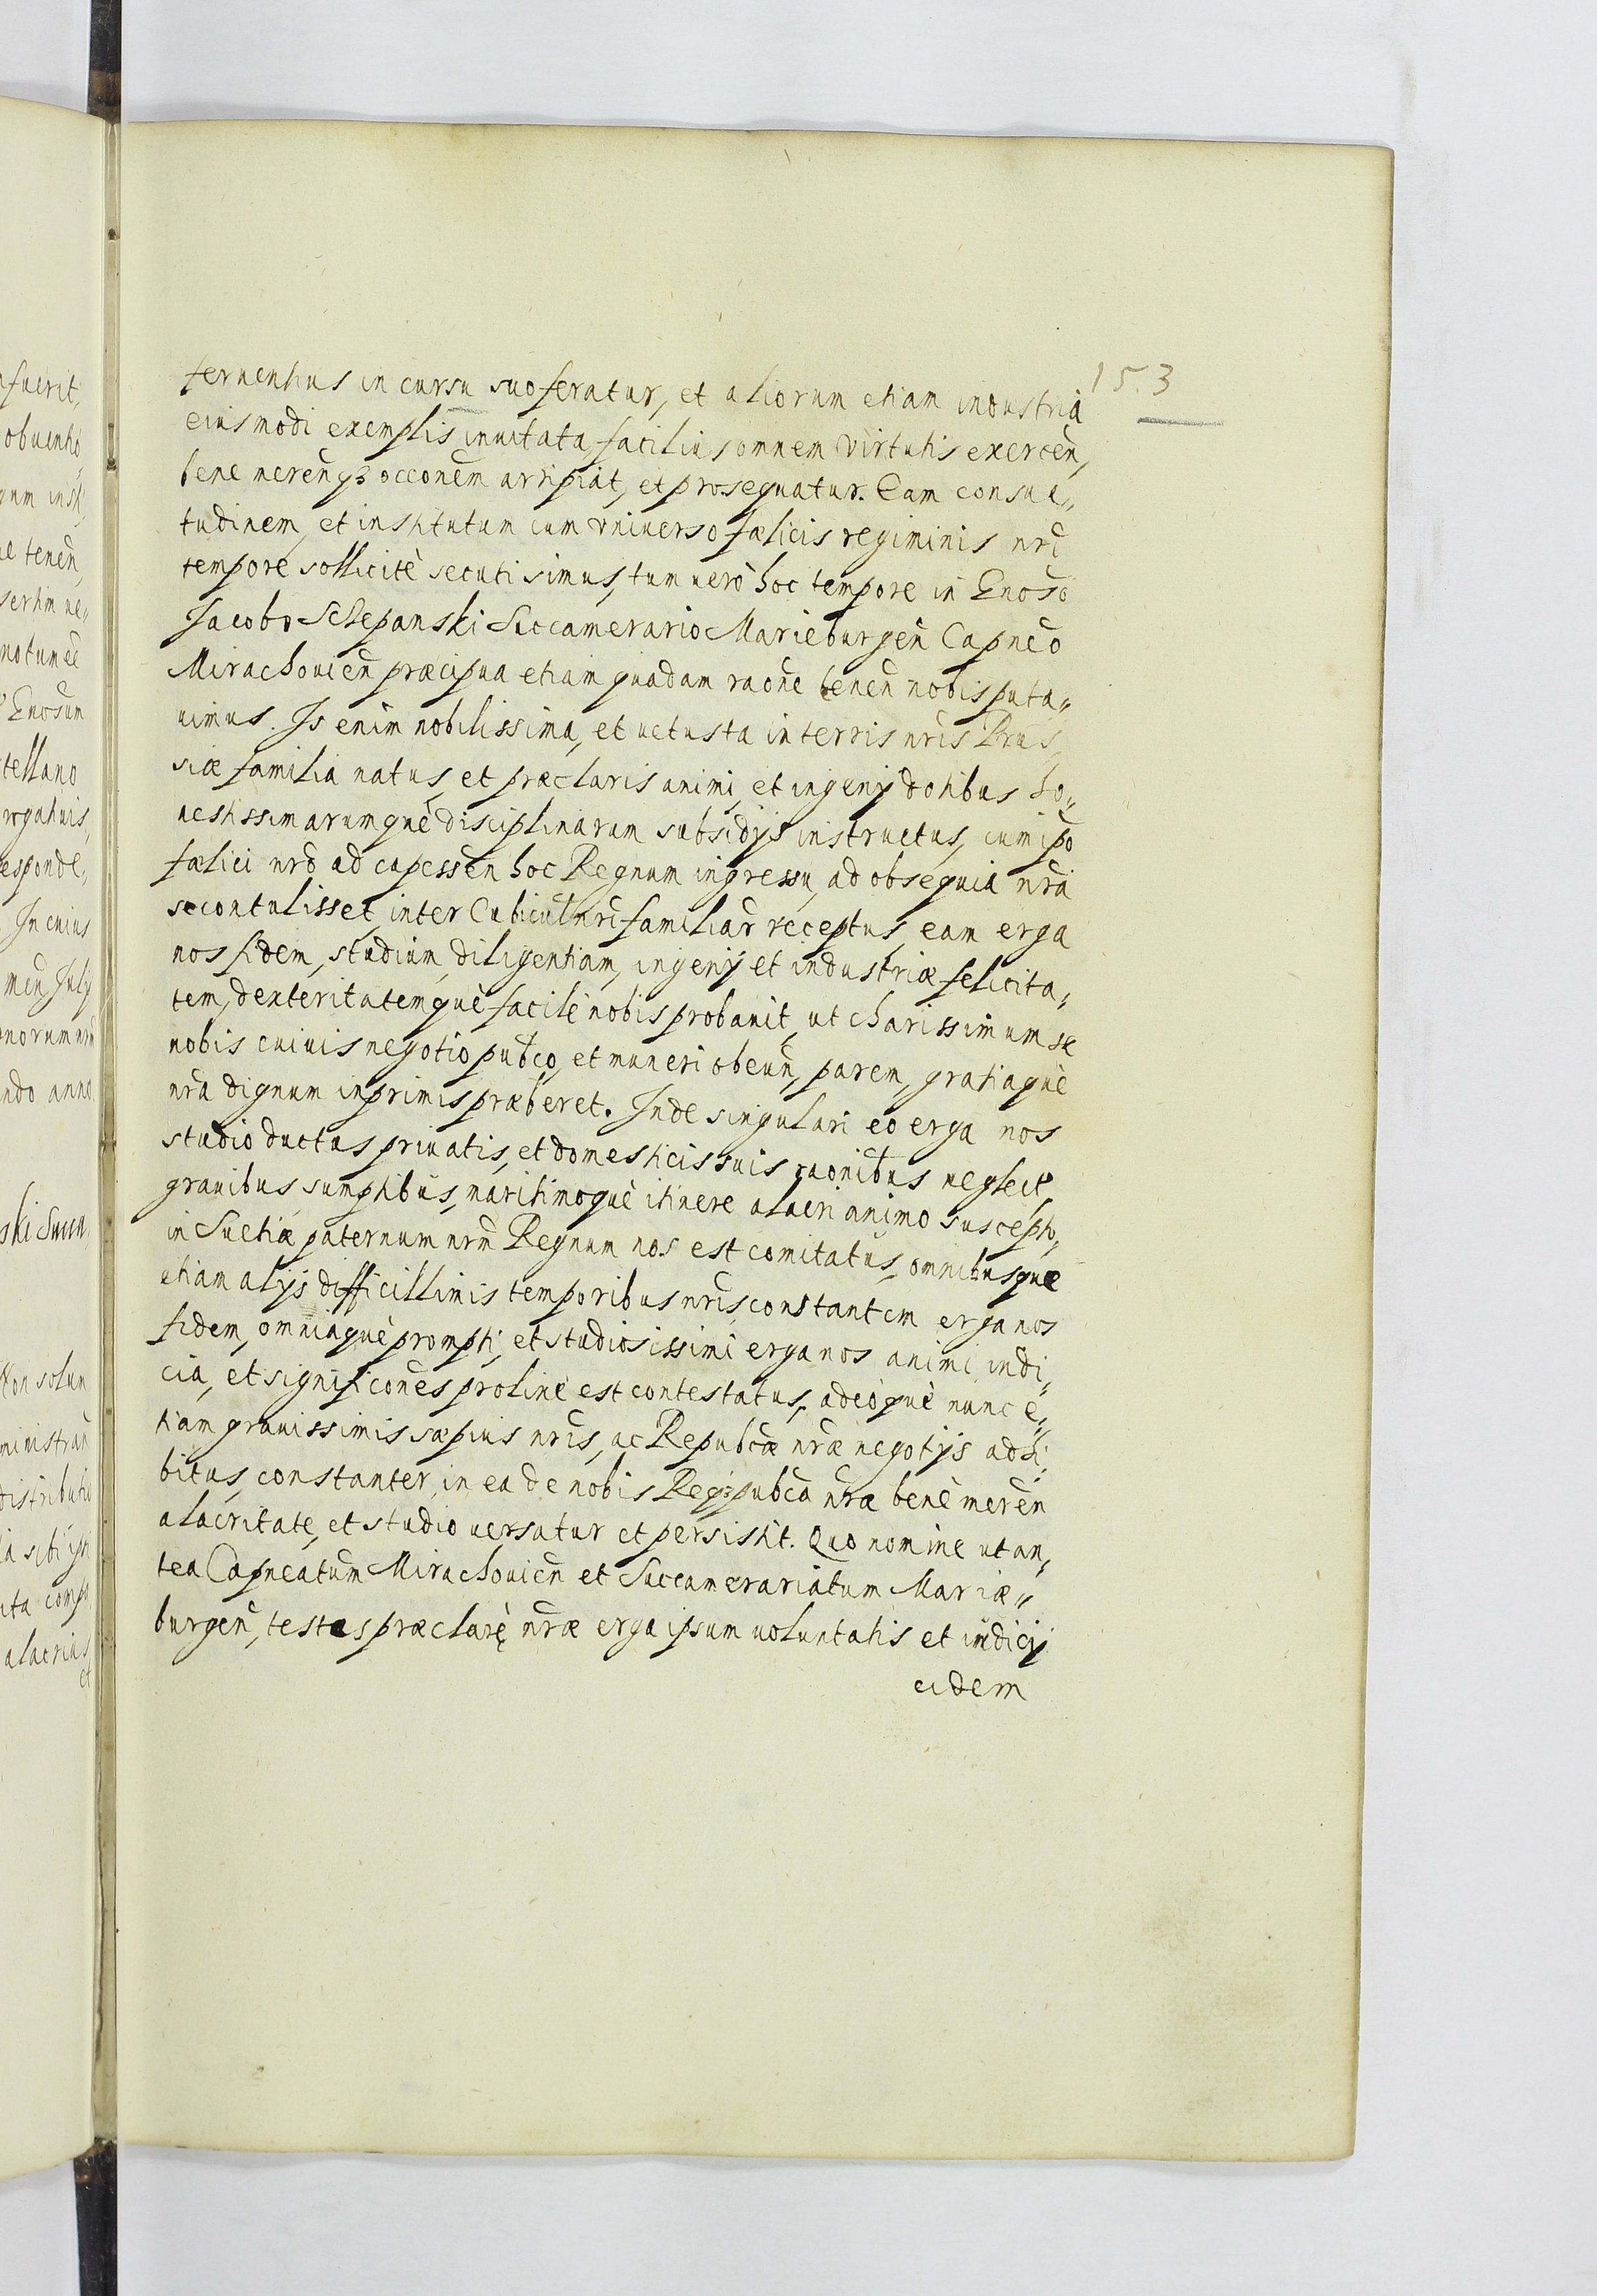 153
feruentius in cursu suo feratur, et aliorum etiam industria
eiusmodi exemplis inuitata, facilius omnem virtutis exercen̄,
bene meren̄qȝ occōnem arripiat, et prosequatur. Eam consue„
tudinem, et institutum cum vniuerso fælicis regiminis nrī
tempore sollicitè secuti simus, tum uerò hoc tempore in Gnoso
Jacobo Sczepanski Succamerario Marieburgen̄ Capnēo
Mirachouien̄ præcipua etiam quadam raōne tenen̄ nobis puta„
uimus. Is enim nobilissima, et uetusta in terris nrīs Prus
siæ familia natus, et præclaris animi, et ingenij dotibus ho„
nestissimarumquè disciplinarum subsidijs instructus, cum ipō
fælici nrō ad capessen̄ hoc Regnum ingressu, ad obsequia nrā
se contulisset, inter Cubicul nrī familiar receptus, eam erga
nos fidem, studium, diligentiam, ingenij et industriæ felicita„
tem, dexteritatemquè facilè nobis probauit, ut charissimum se
nobis cuiuis negotio pubco, et muneri obeun̄, parem, gratiaquè
nrā dignum inprimis præberet. Inde singulari eo erga nos
studio ductus priuatis, et domesticis suis raōnibus neglect,
grauibus sumptibus, maritimoquè itinere alacri animo suscepto„
in Suetiæ paternum nrm̄ Regnum nos est comitatus, omnibusque
etiam alijs difficillimis temporibus nrīs constantem erga nos
fidem, omniaquè prompti, et studiosissimi erga nos animi indi„
cia, et significōnes prolixè est contestatus, adeoquè nunc e„
tiam grauissimis sæpius nrīs, ac Reipubcæ nrǣ negotijs adhi„
bitus, constanter in ea de nobis Reqȝpubca nrā benè meren̄
alacritate, et studio uersatur et persistit. Quo nomine ut an„
tea Capneatum Mirachouien̄ et Succamerariatum Mariæ„
burgen̄, testes præclarę nrǣ erga ipsum uoluntatis et indicij
eidem